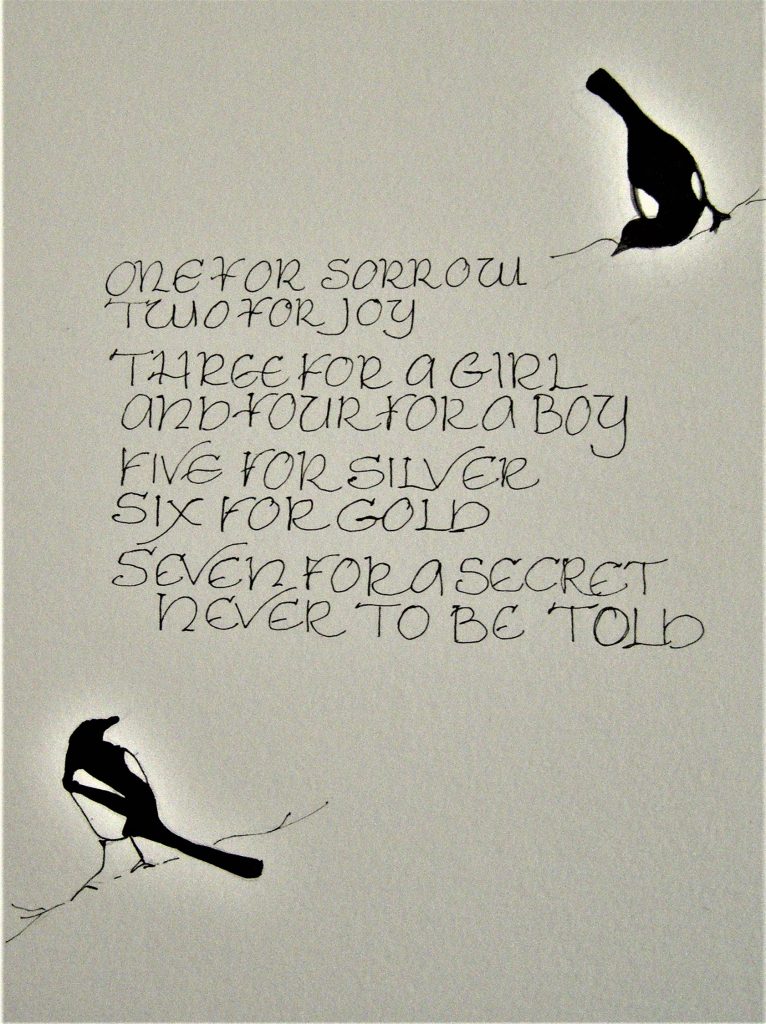 ONE FOR SORROW
TWO FOR JOY
THREE FOR A GIRL
AND FOUR FOR A BOY
FIVE FOR SILVER
SIX FOR GOLD
SEVEN FOR A SECRET
NEVER TO BE TOLD